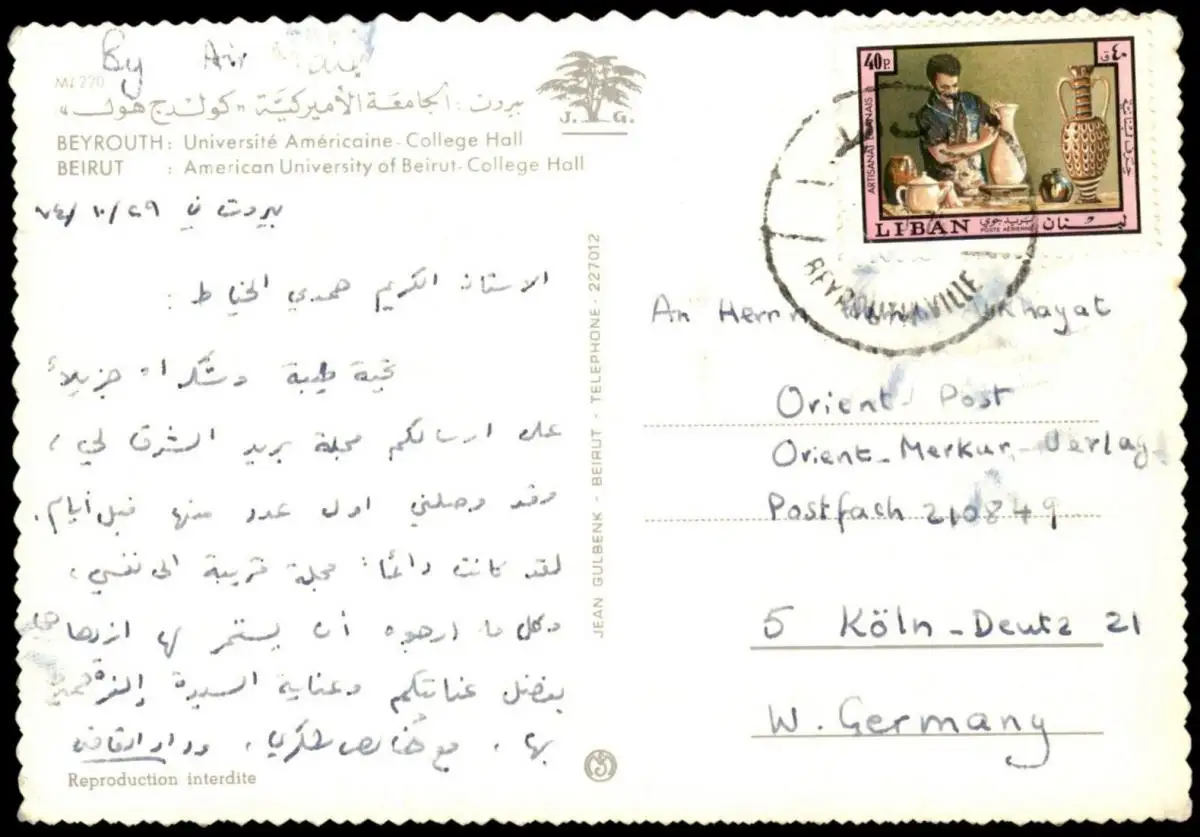 By Air
MJ 220
بيروت : الجامعة الأميركية "كولدج هول"
BEYROUTH: Université Américaine - College Hall
BEIRUT : American University of Beirut - College Hall
J. G.
بيروت في ٢٩/١٠/٧٤
الاستاذ الكريم حمدي الخياط :
تحية طيبة وشكراً جزيلاً
على ارسالكم مجلة بريد الشرق لي ،
وقد وصلني اول عدد منها قبل أيام .
لقد كانت دائماً مجلة قريبة الى نفسي ،
وكل ما ارجوه أن يستمر لها ازدهارها
بفضل عنايتكم وعناية السيدة
بها ، مع خالص شكري ،
Reproduction interdite
JEAN GULBENK - BEIRUT - TELEPHONE - 227012
40P.
٤٠ ق
ARTISANAT LIBANAIS
LIBAN
بريد جوي
POSTE AERIENNE
لبنان
BEYROUTH VILLE
An Herrn
Orient Post
Orient-Merkur-Verlag
Postfach 210849
5 Köln-Deutz 21
W. Germany